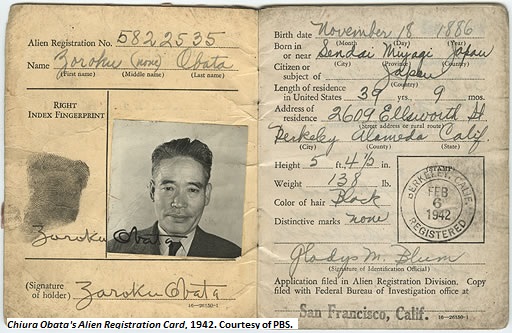 Alien Registration No. 5822535
Name Zoroku (none) Obata
(First name) (Middle name) (Last name)
RIGHT
INDEX FINGERPRINT
Zoroku Obata
(Signature
of holder) Zoroku Obata
16—26150-1
Birth date November 18 1886
(Month) (Day) (Year)
Born in
or near Sendai Miyagi Japan
(City) (Province) (Country)
Citizen or
subject of Japan
(Country)
Length of residence
in United States 39 yrs. 9 mos.
Address of
residence 2609 Ellsworth St.
(Street address or rural route)
Berkeley Alameda Calif.
(City) (County) (State)
Height 5 ft. 4½ in.
Weight 138 lb.
Color of hair Black
Distinctive marks none
STAMP
BERKELEY, CALIF.
FEB
6
1942
REGISTERED
Gladys M. Blum
(Signature of Identification Official)
Application filed in Alien Registration Division. Copy
filed with Federal Bureau of Investigation office at
San Francisco, Calif.
16—26150-1
Chiura Obata's Alien Registration Card, 1942. Courtesy of PBS.